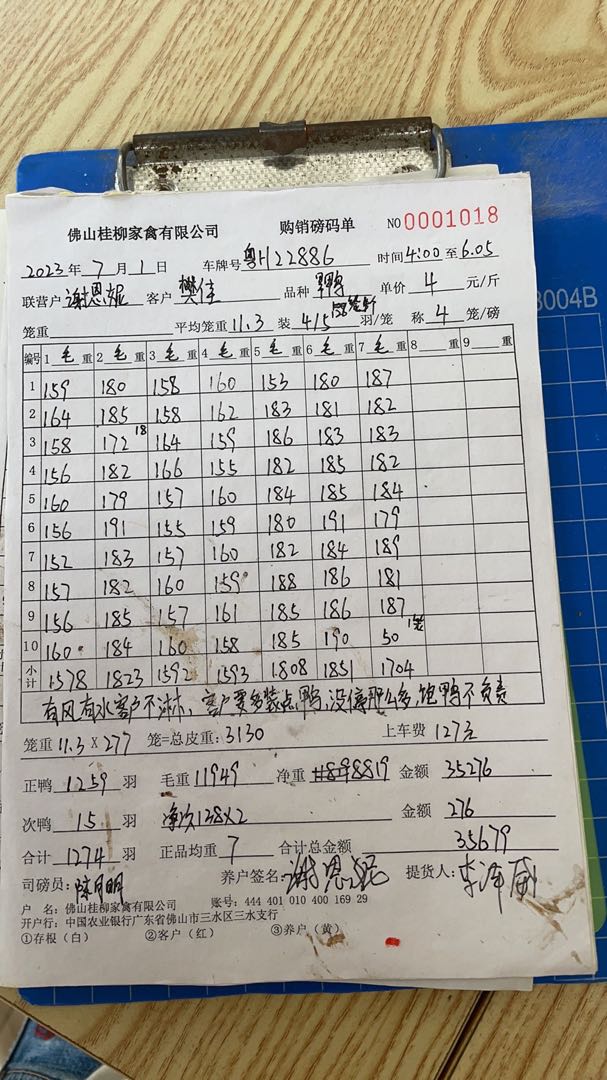 佛山桂柳家禽有限公司 购销磅码单 NO 0001018
2023年 7月1日 车牌号 粤H22886 时间 4:00 至 6.05
联营户 谢恩 客户 樊佳 品种 鸭 单价 4 元/斤
笼重 平均笼重 11.3 装 4/5 羽/笼 称 4 笼/磅
编号 1 毛 重 2 毛 重 3 毛 重 4 毛 重 5 毛 重 6 毛 重 7 毛 重 8 重 9 重
1 159 180 158 160 153 180 187
2 164 185 158 162 183 181 182
3 158 172 18 164 159 186 183 183
4 156 182 166 155 182 185 182
5 160 179 157 160 184 185 184
6 156 191 155 159 180 191 179
7 152 183 157 160 182 184 189
8 157 182 160 159 188 186 181
9 156 185 157 161 185 186 187
10 160 184 160 158 185 190 50 1笼
小计 1578 1823 1592 1593 1808 1851 1704
有风有水客户不淋, 客户要多装点鸭, 没停那么多, 饱鸭不负责
笼重 11.3 X 277 笼=总皮重: 3130 上车费 127元
正鸭 1259 羽 毛重 11949 净重 8819 金额 35276
次鸭 15 羽 净次138X2 金额 276
合计 1274 羽 正品均重 7 合计总金额 35679
司磅员: 陈明 养户签名: 谢恩 提货人: 李泽威
户 名: 佛山桂柳家禽有限公司 账号: 444 401 010 400 169 29
开户行: 中国农业银行广东省佛山市三水区三水支行
①存根（白） ②客户（红） ③养户（黄）
3004B